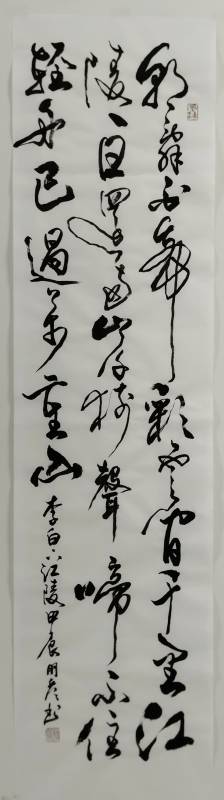 朝辭白帝彩雲間千里江
陵一日還兩岸猿聲啼不住
輕舟已過萬重山
李白下江陵甲辰书